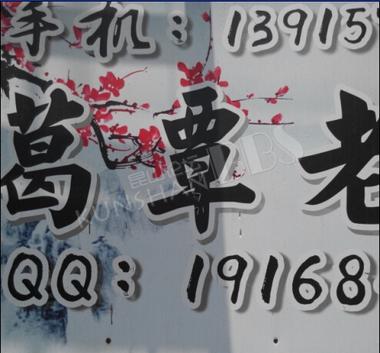 手机：13915
葛覃老
QQ：19168
BBS
KUNSHAN